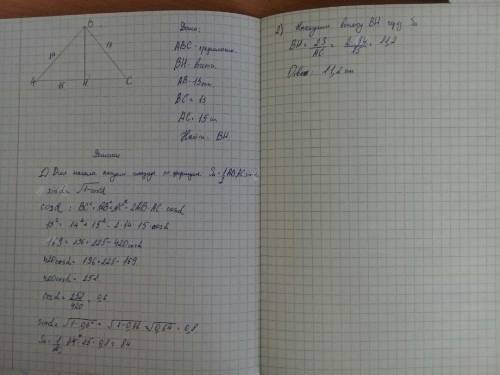 B
14
13
A
15
H
C
Дано:
ABC - треугольник
BH -
AB -
BC = 13
AC = 15 см
Найти: BH.
Решение
1) Для начала найдем площадь по формуле S = 1/2 AB·AC·
sinα = √1-cosα
cosα : BC² = AB² + AC² - 2AB·AC·cosα
13² = 14² + 15² - 2·14·15·cosα
169 = 196 + 225 - 420cosα
420cosα = 196 + 225 - 169
420cosα = 252
cosα = 252/420 = 0,6
sinα = √1-0,6² = √1-0,36 = √0,64 = 0,8
S = 1/2 · 14 · 15 · 0,8 = 84
2) Находим высоту BH
BH = 2S/AC = 2·84/15 = 11,2
Ответ: 11,2 см